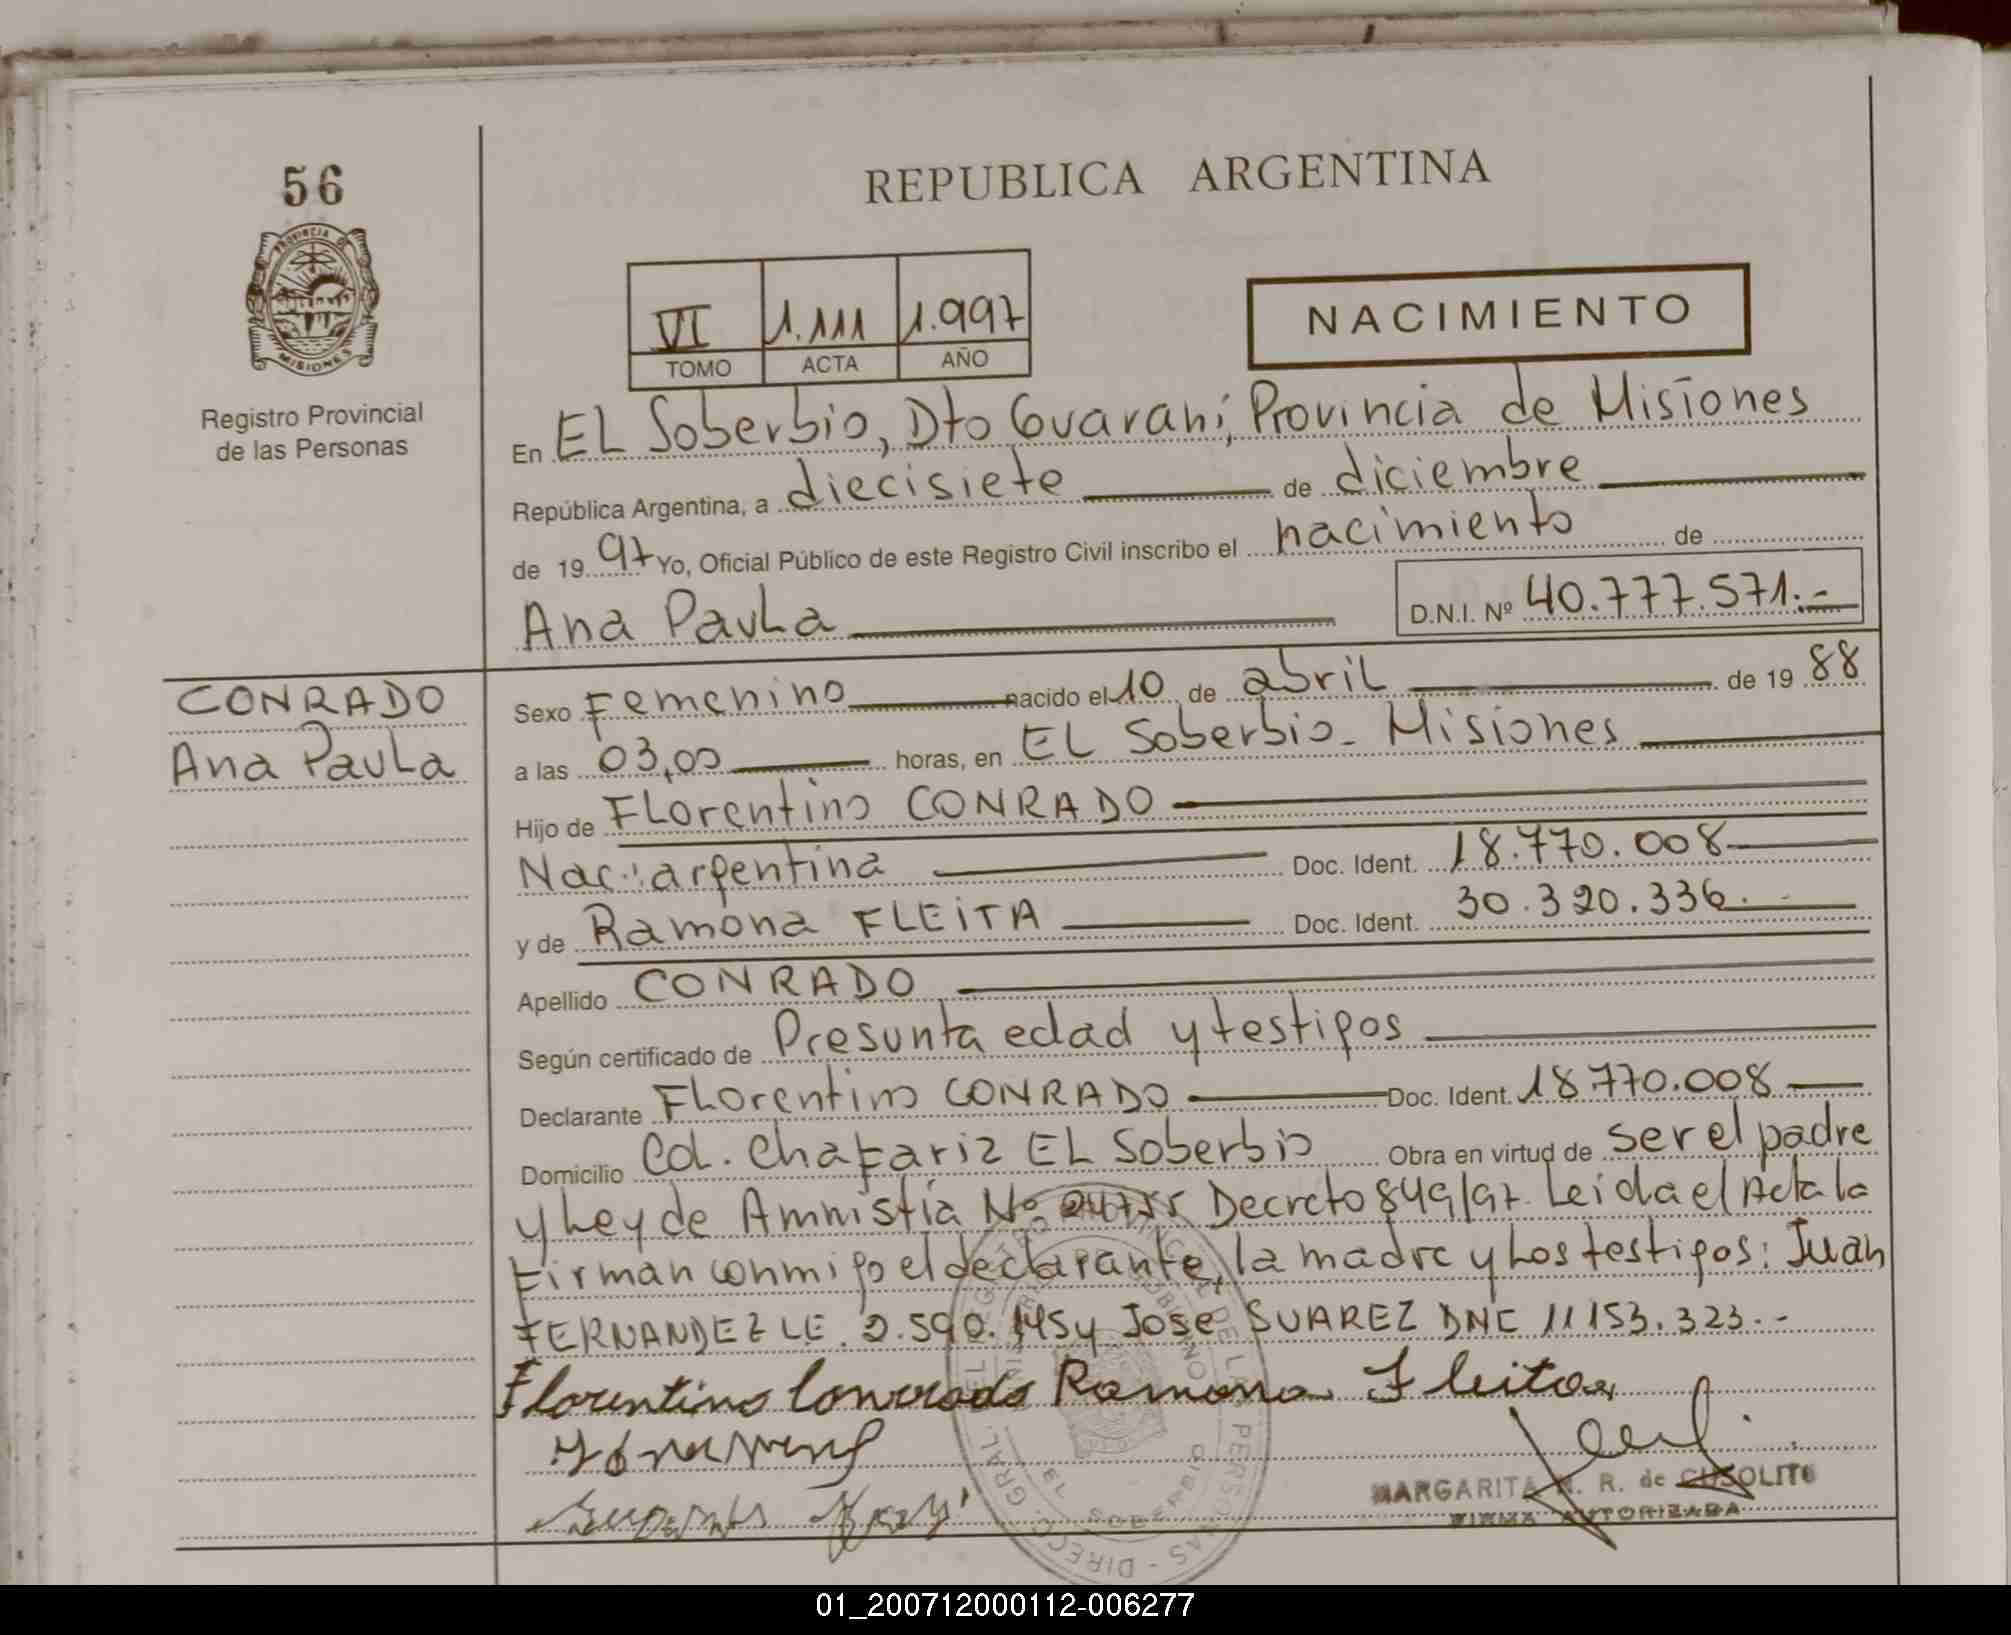 56
REPUBLICA ARGENTINA
PROVINCIA DE
MISIONES
Registro Provincial
de las Personas
VI 1.111 1.997
TOMO ACTA AÑO
NACIMIENTO
En EL Soberbio, Dto Guaraní, Provincia de Misiones
República Argentina, a diecisiete de diciembre
de 1997 Yo, Oficial Público de este Registro Civil inscribo el nacimiento de
Ana PauLa
D.N.I. Nº 40.777.571.-
CONRADO
Ana PauLa
Sexo Femenino nacido el 10 de abril de 1988
a las 03,00 horas, en EL Soberbio - Misiones
Hijo de FLorentino CONRADO
Nac: argentina Doc. Ident. 18.770.008
y de Ramona FLEITA Doc. Ident. 30.320.336.-
Apellido CONRADO
Según certificado de Presunta edad y testigos
Declarante FLorentino CONRADO Doc. Ident. 18.770.008
Domicilio Col. Chafariz EL Soberbio Obra en virtud de ser el padre
y Ley de Amnistía Nº 24755 Decreto 849/97. Leida el Acta la
Firman conmigo el declarante, la madre y Los testigos: Juan
FERNANDEZ LE 2.590.145 y Jose SUAREZ DNI 11153.323.-
Florentino Conrado Ramona Fleita
MARGARITA N. R. de CUSOLITO
FIRMA AUTORIZADA
01_200712000112-006277